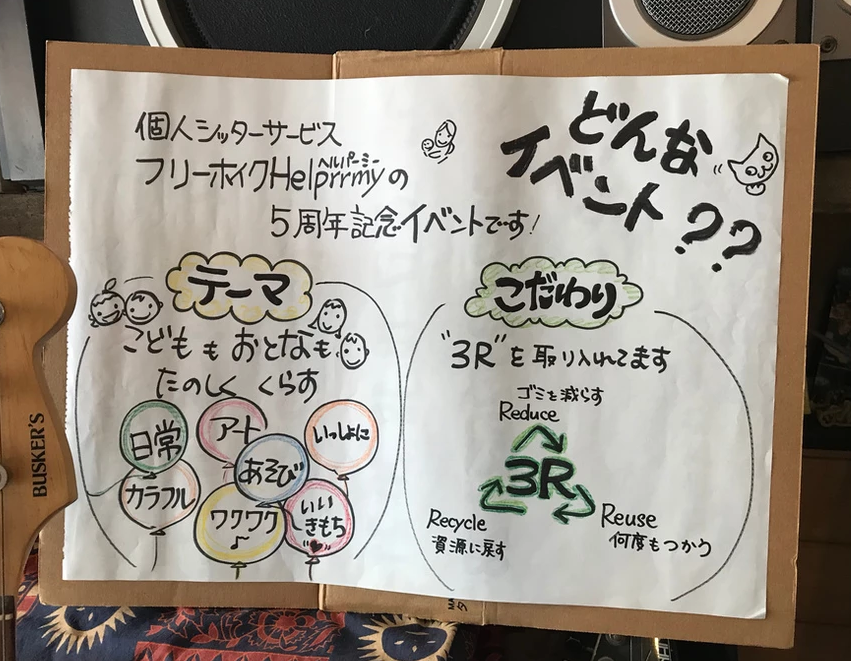 個人シッターサービス
フリーホイクHelprrmyの
ヘルパーミー
5周年記念イベントです!
どんな
イベント??
テーマ
こどももおとなも
たのしく くらす
日常
アート
いっしょに
あそび
カラフル
ワクワク♪
いい
きもち
こだわり
"3R"を取り入れてます
ゴミを減らす
Reduce
3R
Recycle
資源に戻す
Reuse
何度もつかう
BUSKER'S